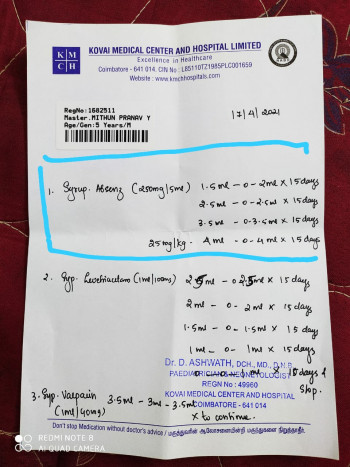 KOVAI MEDICAL CENTER AND HOSPITAL LIMITED
Excellence in Healthcare
Coimbatore - 641 014. CIN No : L85110TZ1985PLC001659
Website : www.kmchhospitals.com
K M
C H
RegNo:1682511
Master.MITHUN PRANAV Y
Age/Gen:5 Years/M
17/4/2021
1. Syrup. Absenz (250mg/5ml) 1.5ml - 0 - 2ml × 15 days
2.5ml - 0 - 2.5ml × 15 days
3.5ml - 0 - 3.5ml × 15 days
25mg/kg. 4ml - 0 - 4ml × 15 days
2. Syp. (1ml/100mg) 2.5ml - 0 2.5ml × 15 days
2ml - 0 - 2ml × 15 days
1.5ml - 0 - 1.5ml × 15 days
1ml - 0 - 1ml × 15 days
0 - 0 - 1ml × 15 days &
stop.
Dr. D. ASHWATH, DCH., MD., D.N.B
PAEDIATRICIAN & NEONETOLOGIST
REGN No : 49960
KOVAI MEDICAL CENTER AND HOSPITAL
COIMBATORE - 641 014
3. Syp. Valparin 3.5ml - 3ml - 3.5ml
(1ml/40mg) × to continue.
Don't stop Medication without doctor's advice / மருத்துவரின் ஆலோசனையின்றி மருந்தை நிறுத்தாதீர்.
REDMI NOTE 8
AI QUAD CAMERA